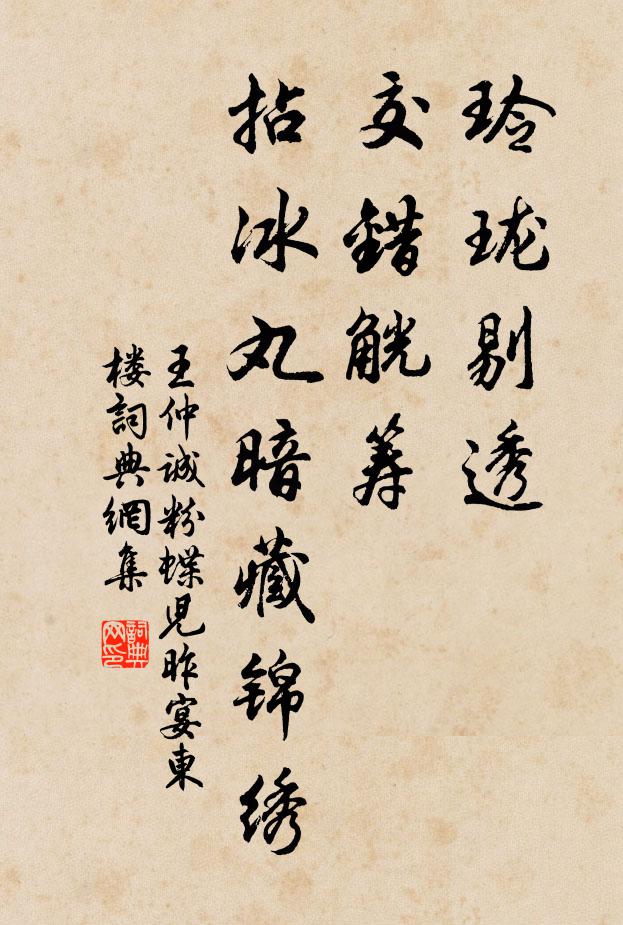 玲珑剔透
交錯觥筹
拈冰丸暗藏锦绣
王仲诚粉蝶児昨宴東
楼詞典網集
詞典网印